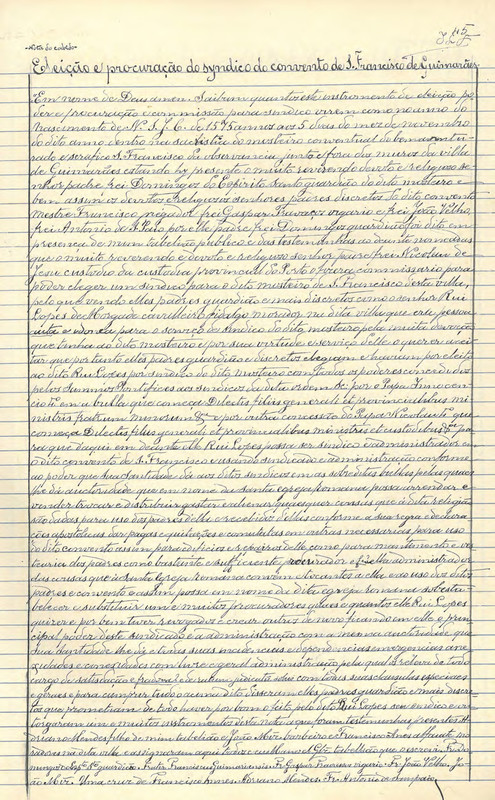 -Nota do coleto-
Eleição e procuração do syndico do convento de S. Francisco de Guimarães
Em nome de Deus amen. Saibam quantos este instrumento de eleição po-
der e procuração e commissão para sindico virem como no anno do
Nascimento de N. S. J. C. de 1545 annos aos 5 dias do mez de novembro
do dito anno dentro na sachristia do mosteiro conventual do bemaventu-
rado e serafico S. Francisco da observancia, junto e fora dos muros da villa
de Guimarães estando hy presente o muito reverendo devoto e religioso se-
nhor padre frei Domingos do Espirito Santo guardião do dito mosteiro e
bem assim os devotos e religiosos senhores padres discretos do dito convento
Mestre Francisco pregador frei Gaspar vigario e frei João Velho,
frei Antonio de S. Paio por elle padre frei Domingos guardião foi dito em
presença de mim tabellião publico e das testemunhas ao diante nomeadas
que o muito reverendo e devoto e religioso senhor padre frei Nicolau de
Jesu custodio da custodia provincial do Porto e fizera commissario para
poder eleger um sindico para o dito mosteiro de S. Francisco desta villa,
pelo que vendo elles padres guardião e mais discretos como o senhor Rui
Lopes da cavalleiro fidalgo morador na dita villa que era pessoa
apta e idonea para o serviço de sindico do dito mosteiro pela muita devoção
que tinha ao dito mosteiro e por sua virtude e serviço delle o querer acei-
tar que portanto elles padres guardião e discretos elegiam e haviam por eleito
ao dito Rui Lopes por sindico do dito mosteiro com todos os poderes concedidos
pelos Summos Pontifices aos sindicos da dita ordem sc: por o Papa Innocen-
cio em a bulla que começa Dilectis filiis generali et provincialibus mi-
nistris fratrum minorum &ª e por outra concessão do Papa Nicolau que
começa Dilectis filiis generali et provincialibus ministris et custodibus &ª pa-
ra que daqui em deante elle Rui Lopes possa ser sindico e administrador em
o dito convento de S. Francisco usando sindicado e administração conforme
ao poder que sua santidade da aos ditos sindicos em as sobreditas bullas pelas quaes
lhe da auctoridade que em nome da santa egreja romana possa arrendar e
vender trocar e distribuir gastar e alienar quaesquer cousas que á dita religião
são dadas para uso dos padres della e recebel-os conforme a sua regra e declara-
ções apostolicas dar pagas e quitações e comutal-as em outras necessarias para uso
do dito convento assim para edificios e reparos delle como para mantimento e ves-
tuaria dos padres como bastante e sufficiente procurador e fiel administrador
das cousas que a santa egreja romana convem tocantes a ella e ao uso dos ditos
padres e convento e assim possa em nome da dita egreja romana sobesta-
belecer e substituir um e muitos procuradores quaes e quantos elle Rui Lopes
quizer e por bem tiver revogal-os e crear outros de novo ficando em elle o prin-
cipal poder deste sindicado e administração com a mesma auctoridade que
sua santidade lhe dá e todas suas incidencias e dependencias emergencias an-
nexidades e connexidades com livre e geral administração pela qual o releva de todo
cargo de satisfação e judicio sisti com todas suas clausulas especiaes
e geraes e para cumprir tudo acima dito disseram elles padres guardião e mais discre-
tos que promettiam de todo haver por bom o feito pelo dito Rui Lopes seu sindico e ou-
torgaram um e muitos instrumentos desta nota, a que foram testemunhas presentes A-
driano Mendes filho de mim tabellião e João Mor. barbeiro e Francisco Annes alfaiate mo-
radores na dita villa e assignaram aqui todos e eu tabellião que o escrevi. Fr. Do-
mingos guardião. Frater Franciscus Guimaranensis. Fr. Gaspar vigario. Fr. João Velho. Jo-
ão Mor. Uma cruz de Francisco Annes. Adriano Mendes. Fr. Antonio de Sampaio.